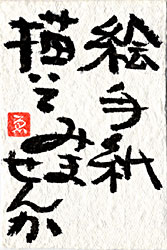 絵手紙
描いて
みま
せんか